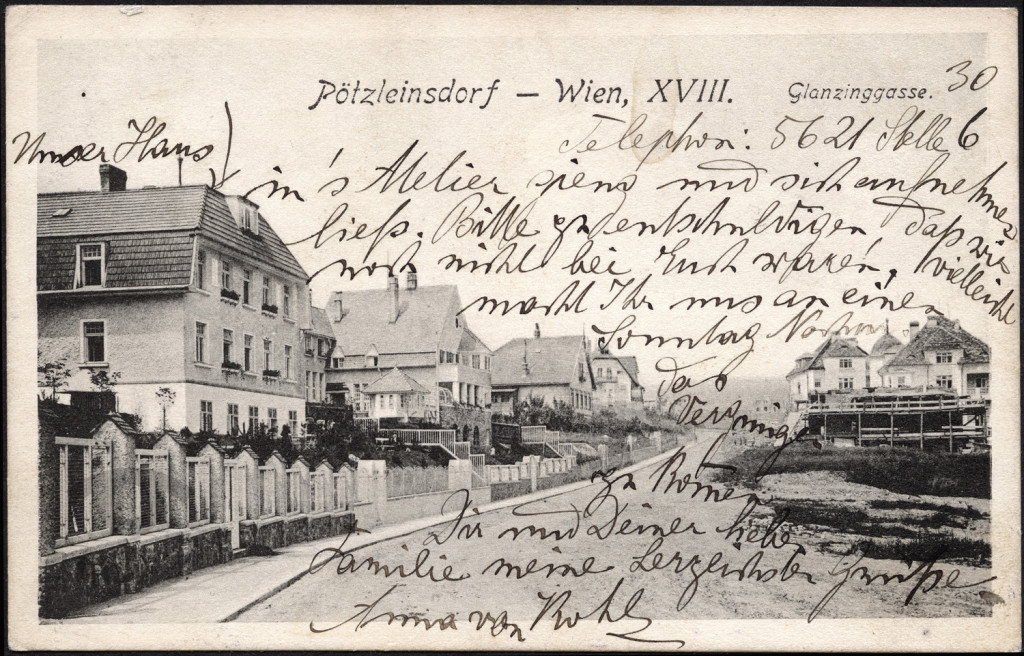 Pötzleinsdorf – Wien, XVIII. Glanzinggasse. 30
Telephon: 5621 Stelle 6
Unser Haus
in's Atelier gieng und sich aufnehmen
ließ. Bitte zu entschuldigen, daß wir
noch nicht bei Euch waren, vielleicht
macht Ihr uns an einem
Sonntag Nachm
das
Vergnügen
zu kommen
Dir und Deiner liebe
Familie meine herzlichsten Grüße
Anna von